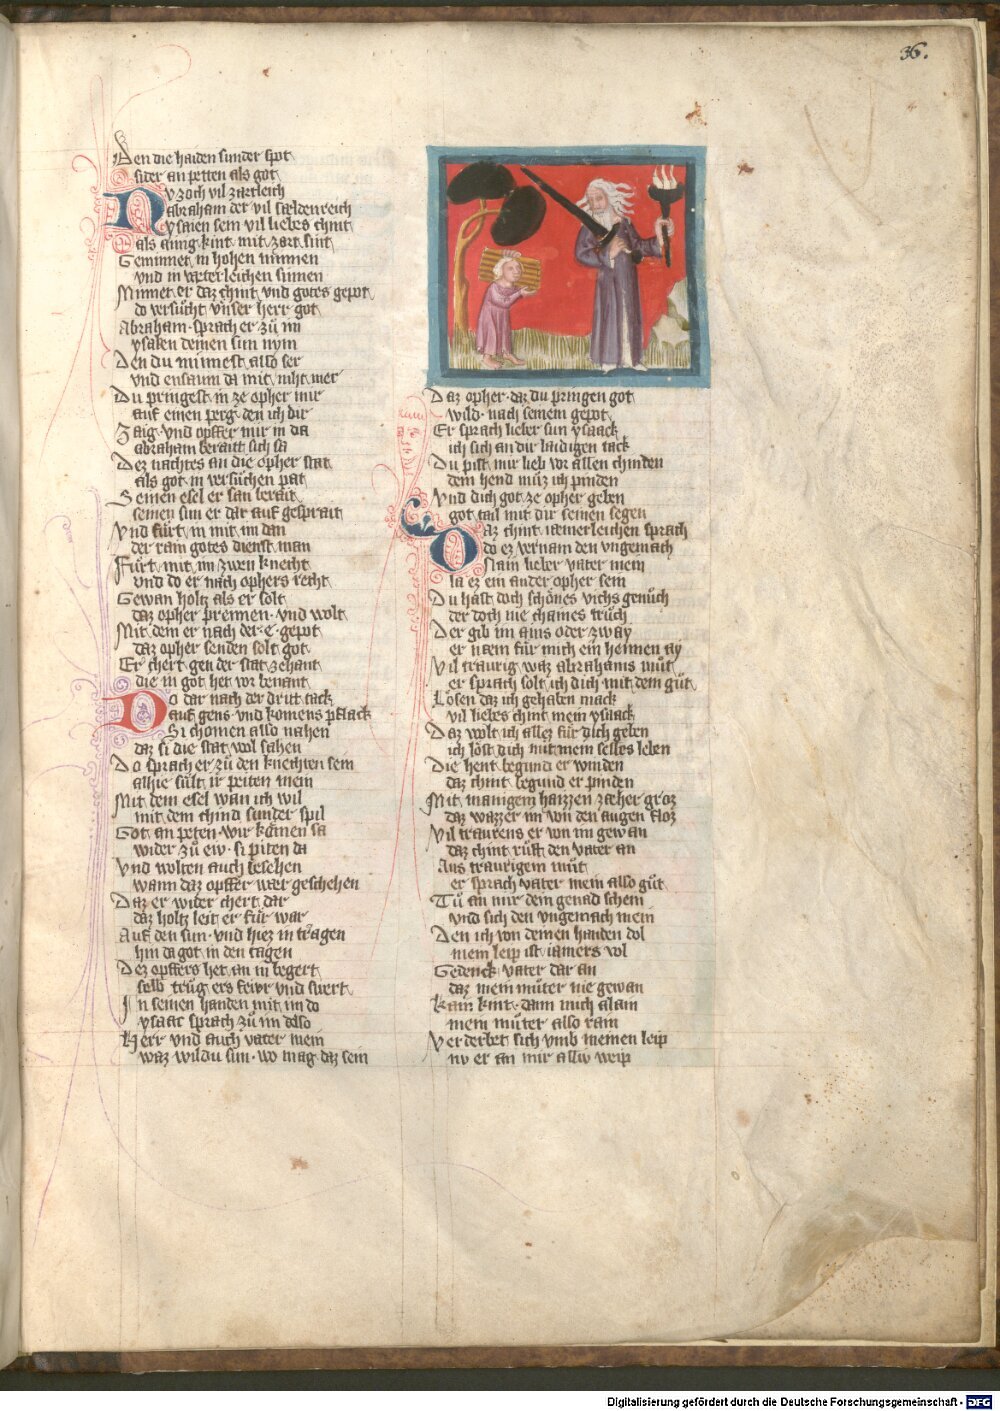 36.
Den die haiden sunder spot
fuͤr an petten als got
Nu zoch vil zartleich
abraham der vil sældenreich
ysaien sein vil liebes chint
als ainig kint mit zart sint
Geminnet in hohen minnen
vnd in væterleichen sinnen
Minnet er daz chint vnd gotes gepot
do versuͦcht vnser herr got
Abraham sprach er zuͦ im
ysaken deinen sun nym
Den du minnest also ser
vnd ensaum da mit niht mer
Du pringest in ze opher mir
auf einen perg den ich dir
Zaig vnd opffer mir in da
abraham berait sich sa
Dez nachtes an die opher stat
als got in versuͦchen pat
Seinen esel er san berait
seinen sun er dar auf gesprait
Vnd fuͤrt in mit im dan
der rain gotes dienst man
Fuͤrt mit im zwen knecht
vnd do er nach ophers recht
Gewan holtz als er solt
daz opher prennen vnd wolt
Mit dem er nach der e gepot
daz opher senden solt got
Er chert gen der stat zehant
die im got het vor benant
Do dar nach der dritt tack
auf gens vnd komens pflack
Si chomen also nahen
daz si die stat wol sahen
Do sprach er zuͦ den knechten sein
alhie suͤlt ir peiten mein
Mit dem esel wan ich wil
mit dem chind sunder spil
Got an peten wir komen sa
wider zuͦ ew si piten da
Vnd wolten auch besehen
wann daz opffer wær geschehen
Daz er wider chert dar
daz holtz leit er fuͤr war
Auf den sun vnd hiez in tragen
hin da got in den tagen
Dez opffers het an in begert
selb truͦg ers fewr vnd swert
In seinen handen mit im do
ysaac sprach zuͦ im also
Herr vnd auch vater mein
waz wildu sun wo mag daz sein
Daz opher daz du pringen got
wild nach seinem gepot
Er sprach lieber sun ysaack
ich sich an dir laidigen tack
Du pist mir lieb vor allen chinden
dein hend muͦz ich pinden
Vnd dich got ze opher geben
got tail mit dir seinen segen
Daz chint iæmerleichen sprach
do ez vernam den vngemach
Nain lieber vater mein
la ez ein ander opher sein
Du hast doch schoͤnes vichs genuͦch
der doch nie chaines truͦch
Der gib im ains oder zway
er næm fuͤr mich ein hennen ay
Vil traurig waz abrahams muͦt
er sprach solt ich dich mit dem guͦt
Loͤsen daz ich gehaben mack
vil liebes chint mein ysaack
Daz wolt ich allez fuͤr dich geben
ich loͤst dich mit mein selbes leben
Die hent begund er winden
daz chint begund er pinden
Mit manigem haizzen zæher groz
daz wazzer im von den augen floz
Vil traurens er von im gewan
daz chint ruͦfft den vater an
Aus traurigem muͦt
er sprach vater mein also guͦt
Tuͦ an mir dein genad schein
vnd sich den vngemach mein
Den ich von deinen handen dol
mein leip ist iamers vol
Gedenck vater dar an
daz mein muͦter nie gewan
Kain kint dann mich alain
mein muͦter also rain
Verderbet sich vmb meinen leip
nv er an mir alliv weip
Digitalisierung gefördert durch die Deutsche Forschungsgemeinschaft - DFG